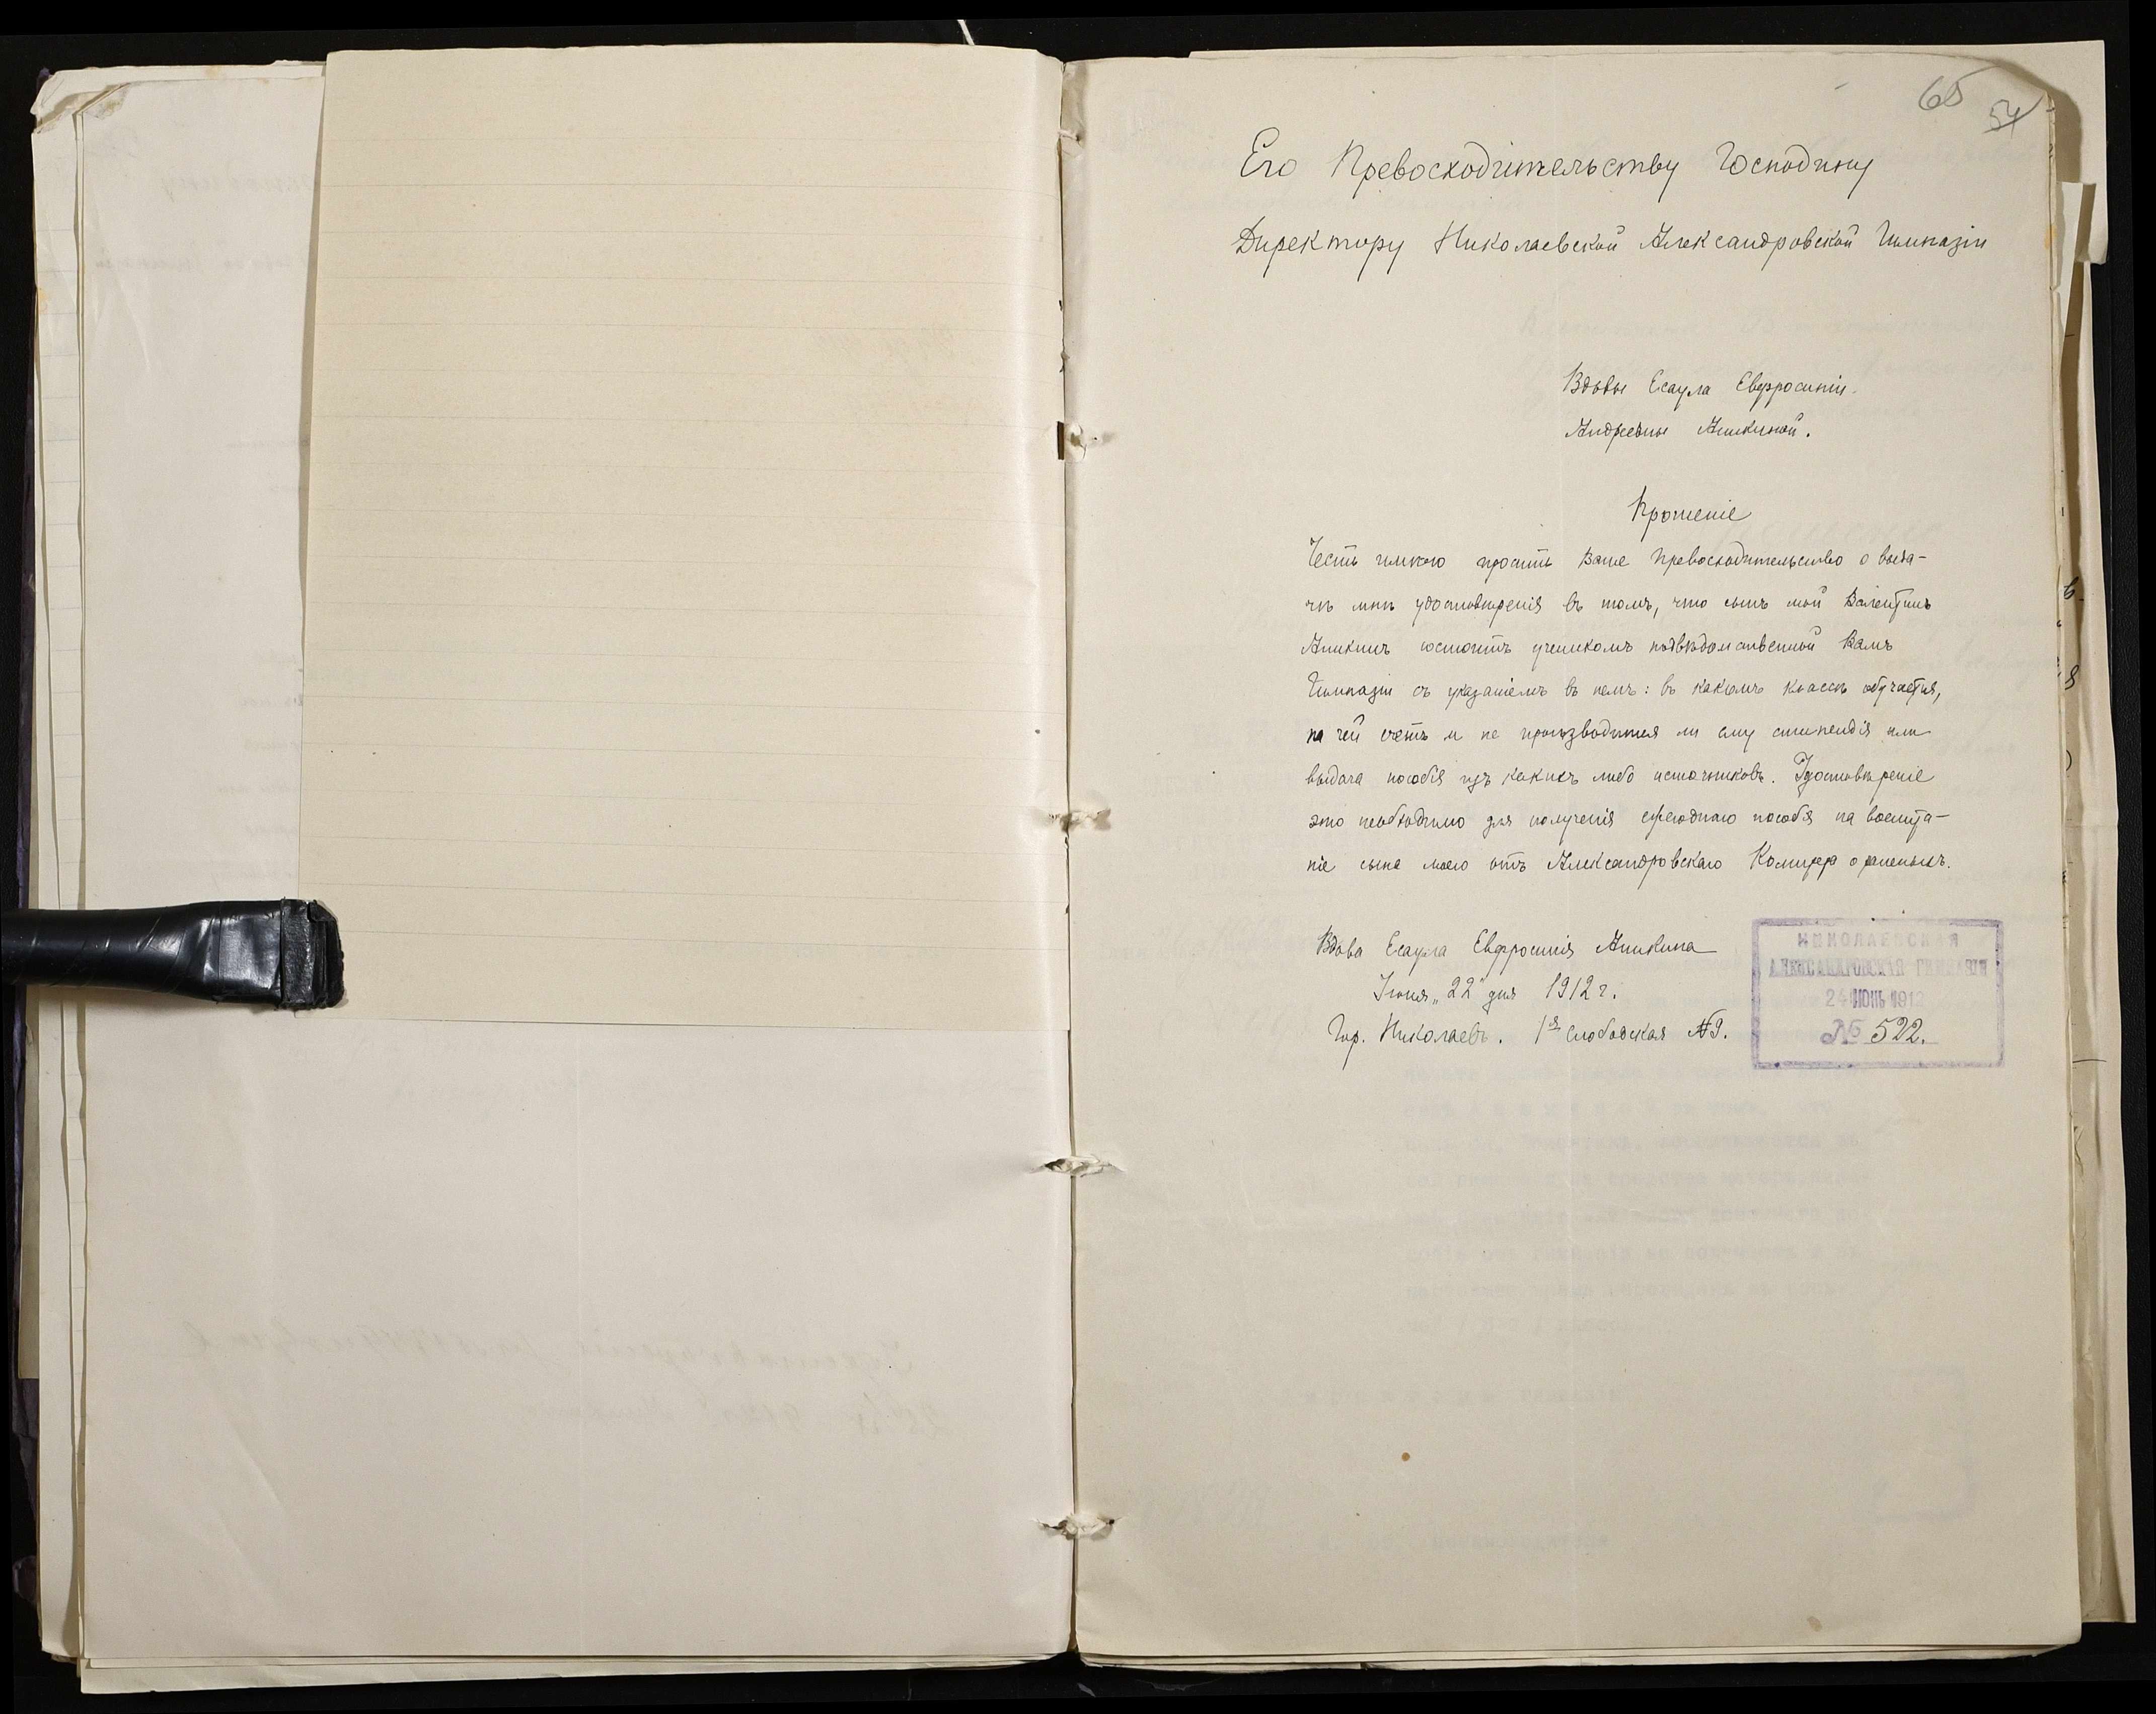 65
54
Его Превосходительству Господину
Директору Николаевской Александровской Гимназіи
Вдовы Есаула Евфросиніи
Андреевны Аникиной.
Прошеніе
Честь имѣю просить Ваше Превосходительство о выда-
чѣ мнѣ удостовѣренія въ томъ, что сынъ мой Валентинъ
Аникинъ состоитъ ученикомъ подвѣдомственной Вамъ
Гимназіи съ указаніемъ въ немъ: въ какомъ классѣ обучается,
на чей счетъ и не производится ли ему стипендія или
выдача пособія изъ какихъ либо источниковъ. Удостовѣреніе
это необходимо для полученія ежегоднаго пособія на воспита-
ніе сына моего отъ Александровскаго Комитета о раненыхъ.
Вдова Есаула Евфросинія Аникина
Іюня „22" дня 1912 г.
Гор. Николаевъ. 1я Слободская № 9.
НИКОЛАЕВСКАЯ
АЛЕКСАНДРОВСКАЯ ГИМНАЗІЯ
24 ІЮНЬ 1912
№ 522.